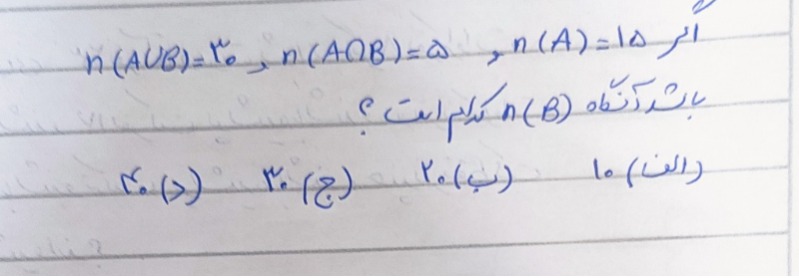 اگر n(A)=۱۵ , n(A∩B)=۵ , n(A∪B)=۳۰
باشد آنگاه n(B) کدام است ؟
الف) ۱۰ ب) ۲۰ ج) ۳۰ د) ۴۰